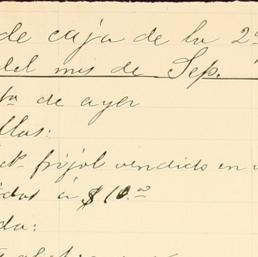 de caja de la 2ª
del mes de Sep.
ta de ayer
llas:
frijol vendido en
idas á $10.00
da: